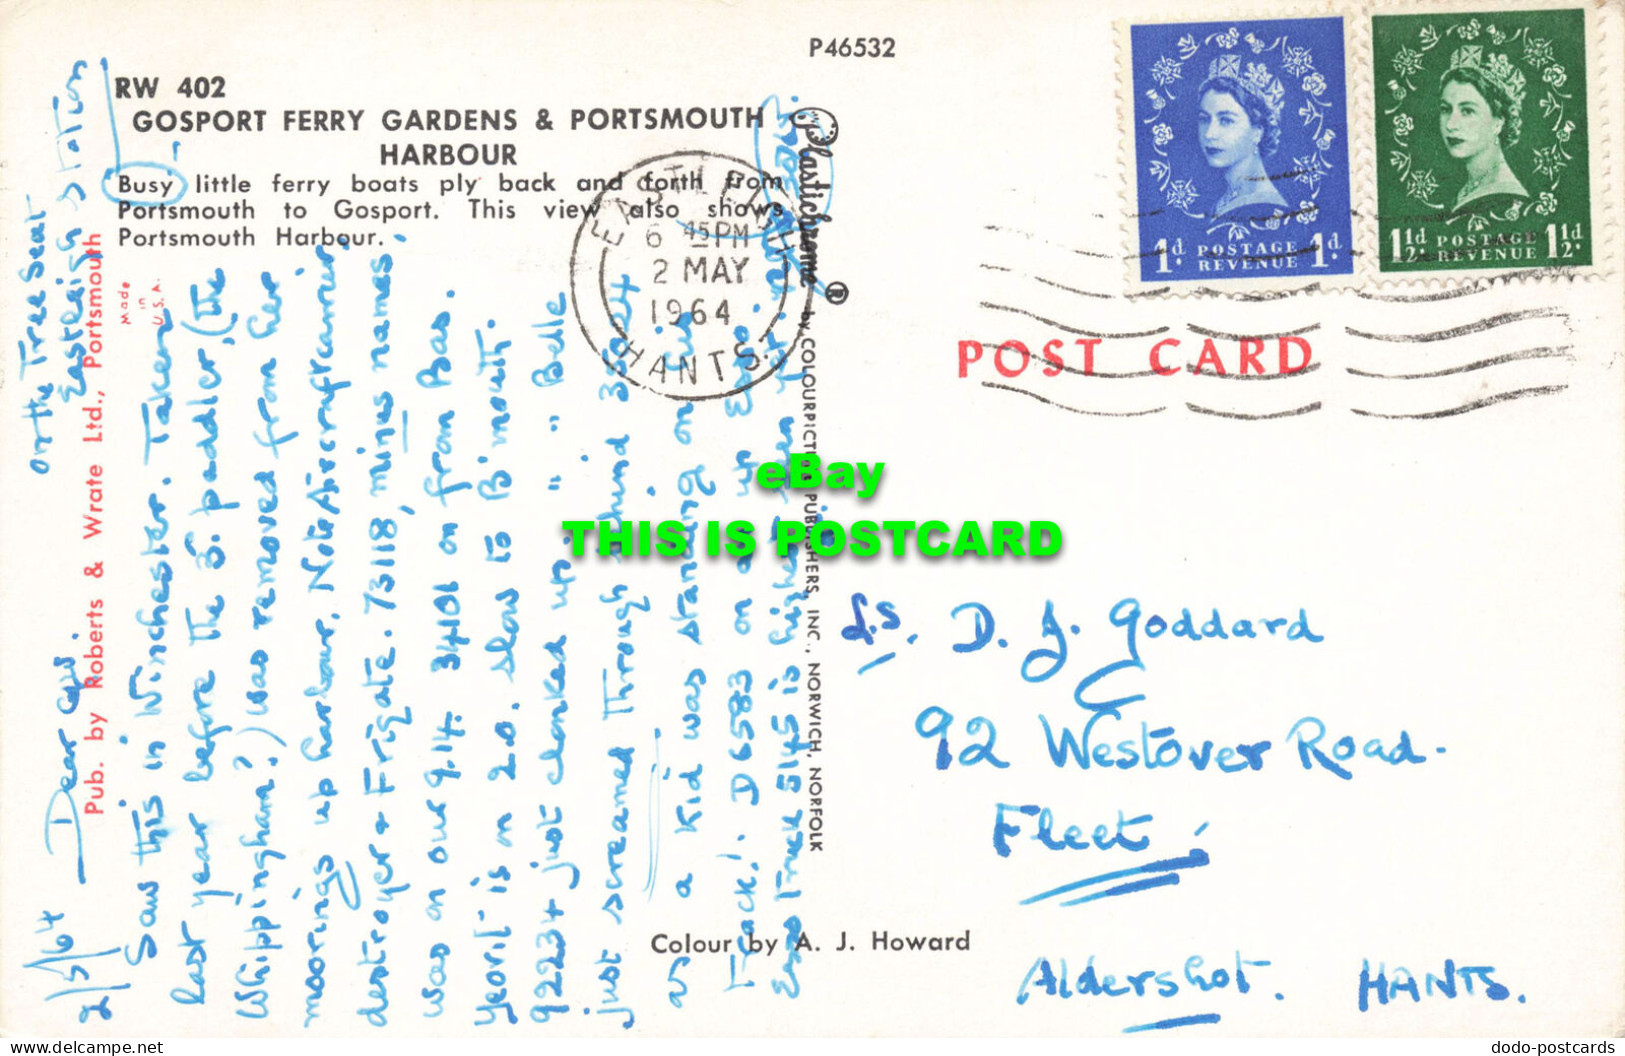 P46532
RW 402
GOSPORT FERRY GARDENS & PORTSMOUTH
HARBOUR
Busy little ferry boats ply back and forth from
Portsmouth to Gosport. This view also shows
Portsmouth Harbour.
Pub. by Roberts & Wrate Ltd., Portsmouth
Made
in
U.S.A.
Plastichrome ®
by COLOURPICTURE PUBLISHERS, INC., NORWICH, NORFOLK
Colour by A. J. Howard
EASTLEIGH
6 45 PM
2 MAY
1964
HANTS.
1d. POSTAGE REVENUE 1d.
1½d. POSTAGE REVENUE 1½d.
POST CARD
2/5/64
on the Tree Seat
Eastleigh station
Dear
Saw this in Winchester. Taken
last year before the 3. paddler, (the
Whippingham?) was removed from her
moorings up harbour. Note Aircraft carrier,
destroyer & Frigate. 73118, minus names.
was on our 9.14. 34101 on from Bas.
Yeovil is on 2.0. slow to B'mouth.
92234 just clanked up. " " Belle
just screamed through behind
as a kid was standing on
Track! D6583 on a up
Esso Truck 5145 is highest
D. J. Goddard
92 Westover Road.
Fleet,
Aldershot. HANTS.
eBay
THIS IS POSTCARD
dodo-postcards
Delcampe.net